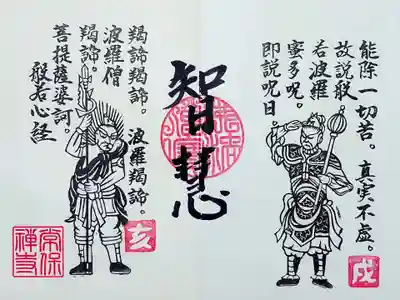 能除一切苦。真実不虚。
故説般
若波羅
蜜多呪。
即説呪曰。
戌
智慧
羯諦羯諦。波羅羯諦。
波羅僧
羯諦。
菩提薩婆訶。
般若心経
亥
常保
禅寺